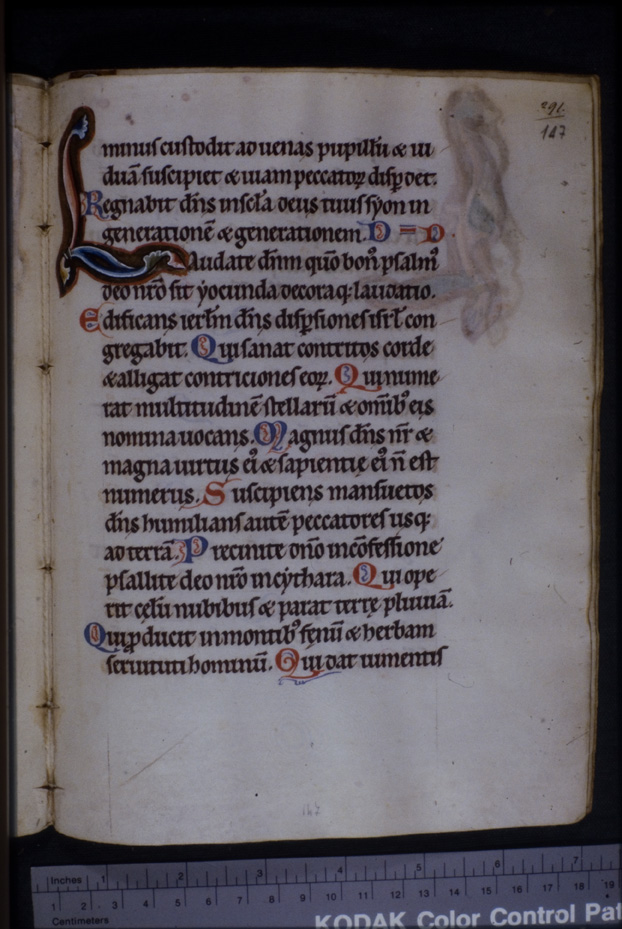 291.
147
minus custodit aduenas pupillū & ui
duā suscipiet & uiam peccatoꝝ disꝑdet.
Regnabit dn̄s in sc̄la deus tuus syon in
generationē & generationem.
Laudate dn̄m quō bon᷒ psalm᷒
deo nr̄o sit yocunda decoraq: laudatio.
Edificans ierl̄m dn̄s disꝑsiones isr̄l con
gregabit. Qui sanat contritos corde
& alligat contriciones eoꝝ. Qui nume
rat multitudinē stellarū & omīb᷒ eis
nomina uocans. Magnus dn̄s nr̄ &
magna uirtus ei᷒ & sapientię ei᷒ n̄ est
numerus. Suscipiens mansuetos
dn̄s humilians autē peccatores usq:
ad terrā. Precinite dn̄o in cōfessione
psallite deo nr̄o in cythara. Qui ope
rit cęlū nubibus & parat terrę pluuiā.
Qui ꝓducit in montib᷒ fęnū & herbam
seruituti hominū. Qui dat iumentis
147
Inches 1 2 3 4 5 6 7
1 2 3 4 5 6 7 8 9 10 11 12 13 14 15 16 17 18 19
Centimeters
KODAK Color Control Pat